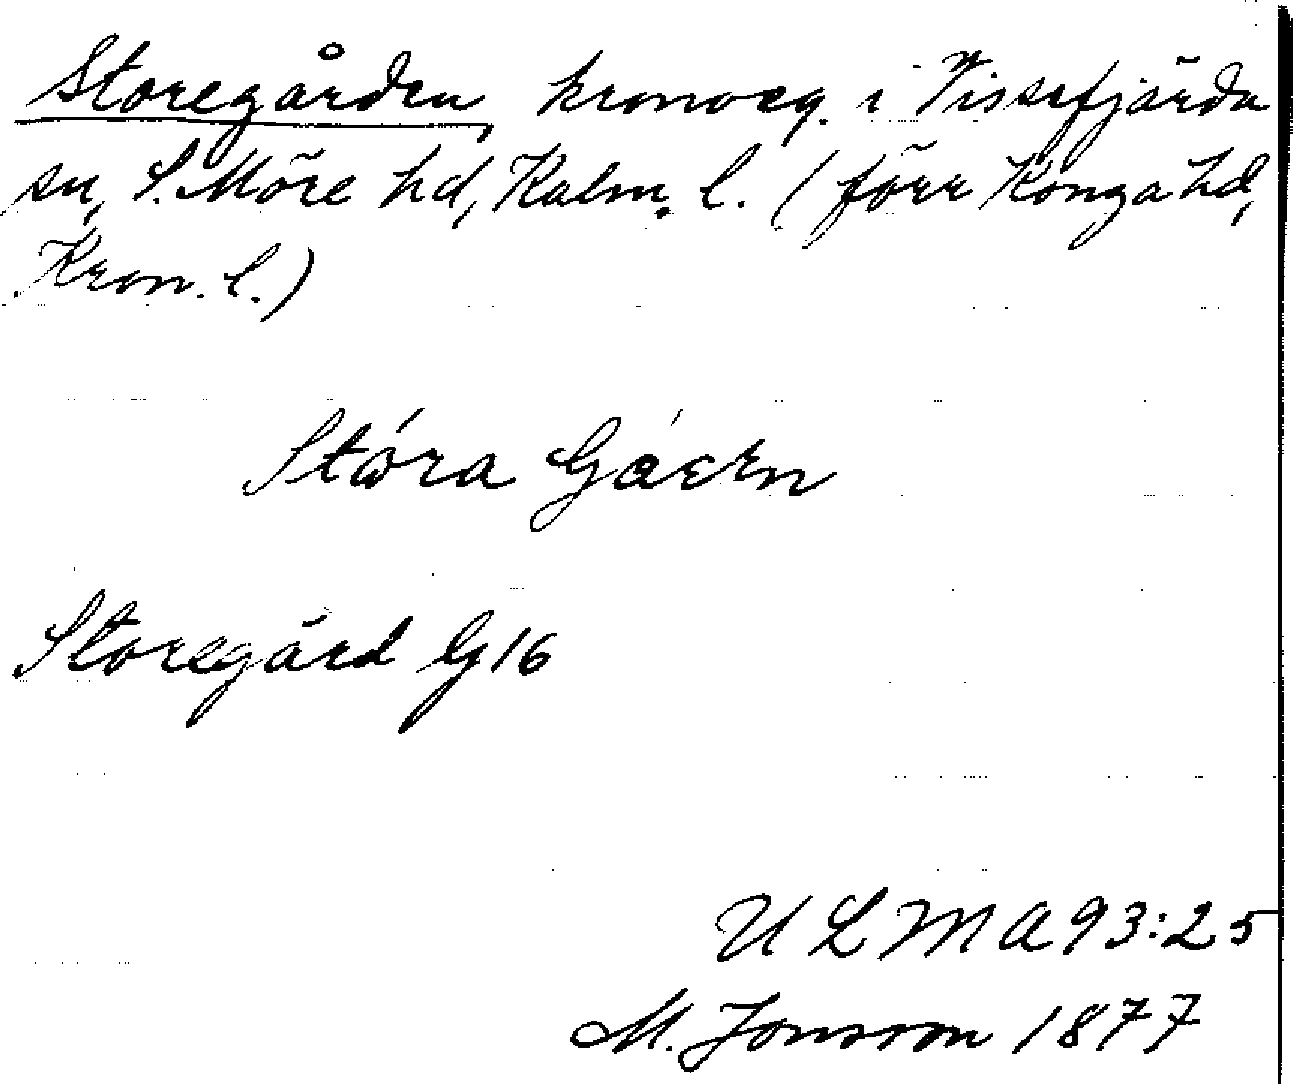 Storegården, kronoeg. i Vissefjärda
sn, S. Möre hd, Kalm. l. (förr Konga hd,
Kron. l.)
Stóra Gáern
Storegård G16
ULMA 93:25
M. Jonsson 1877